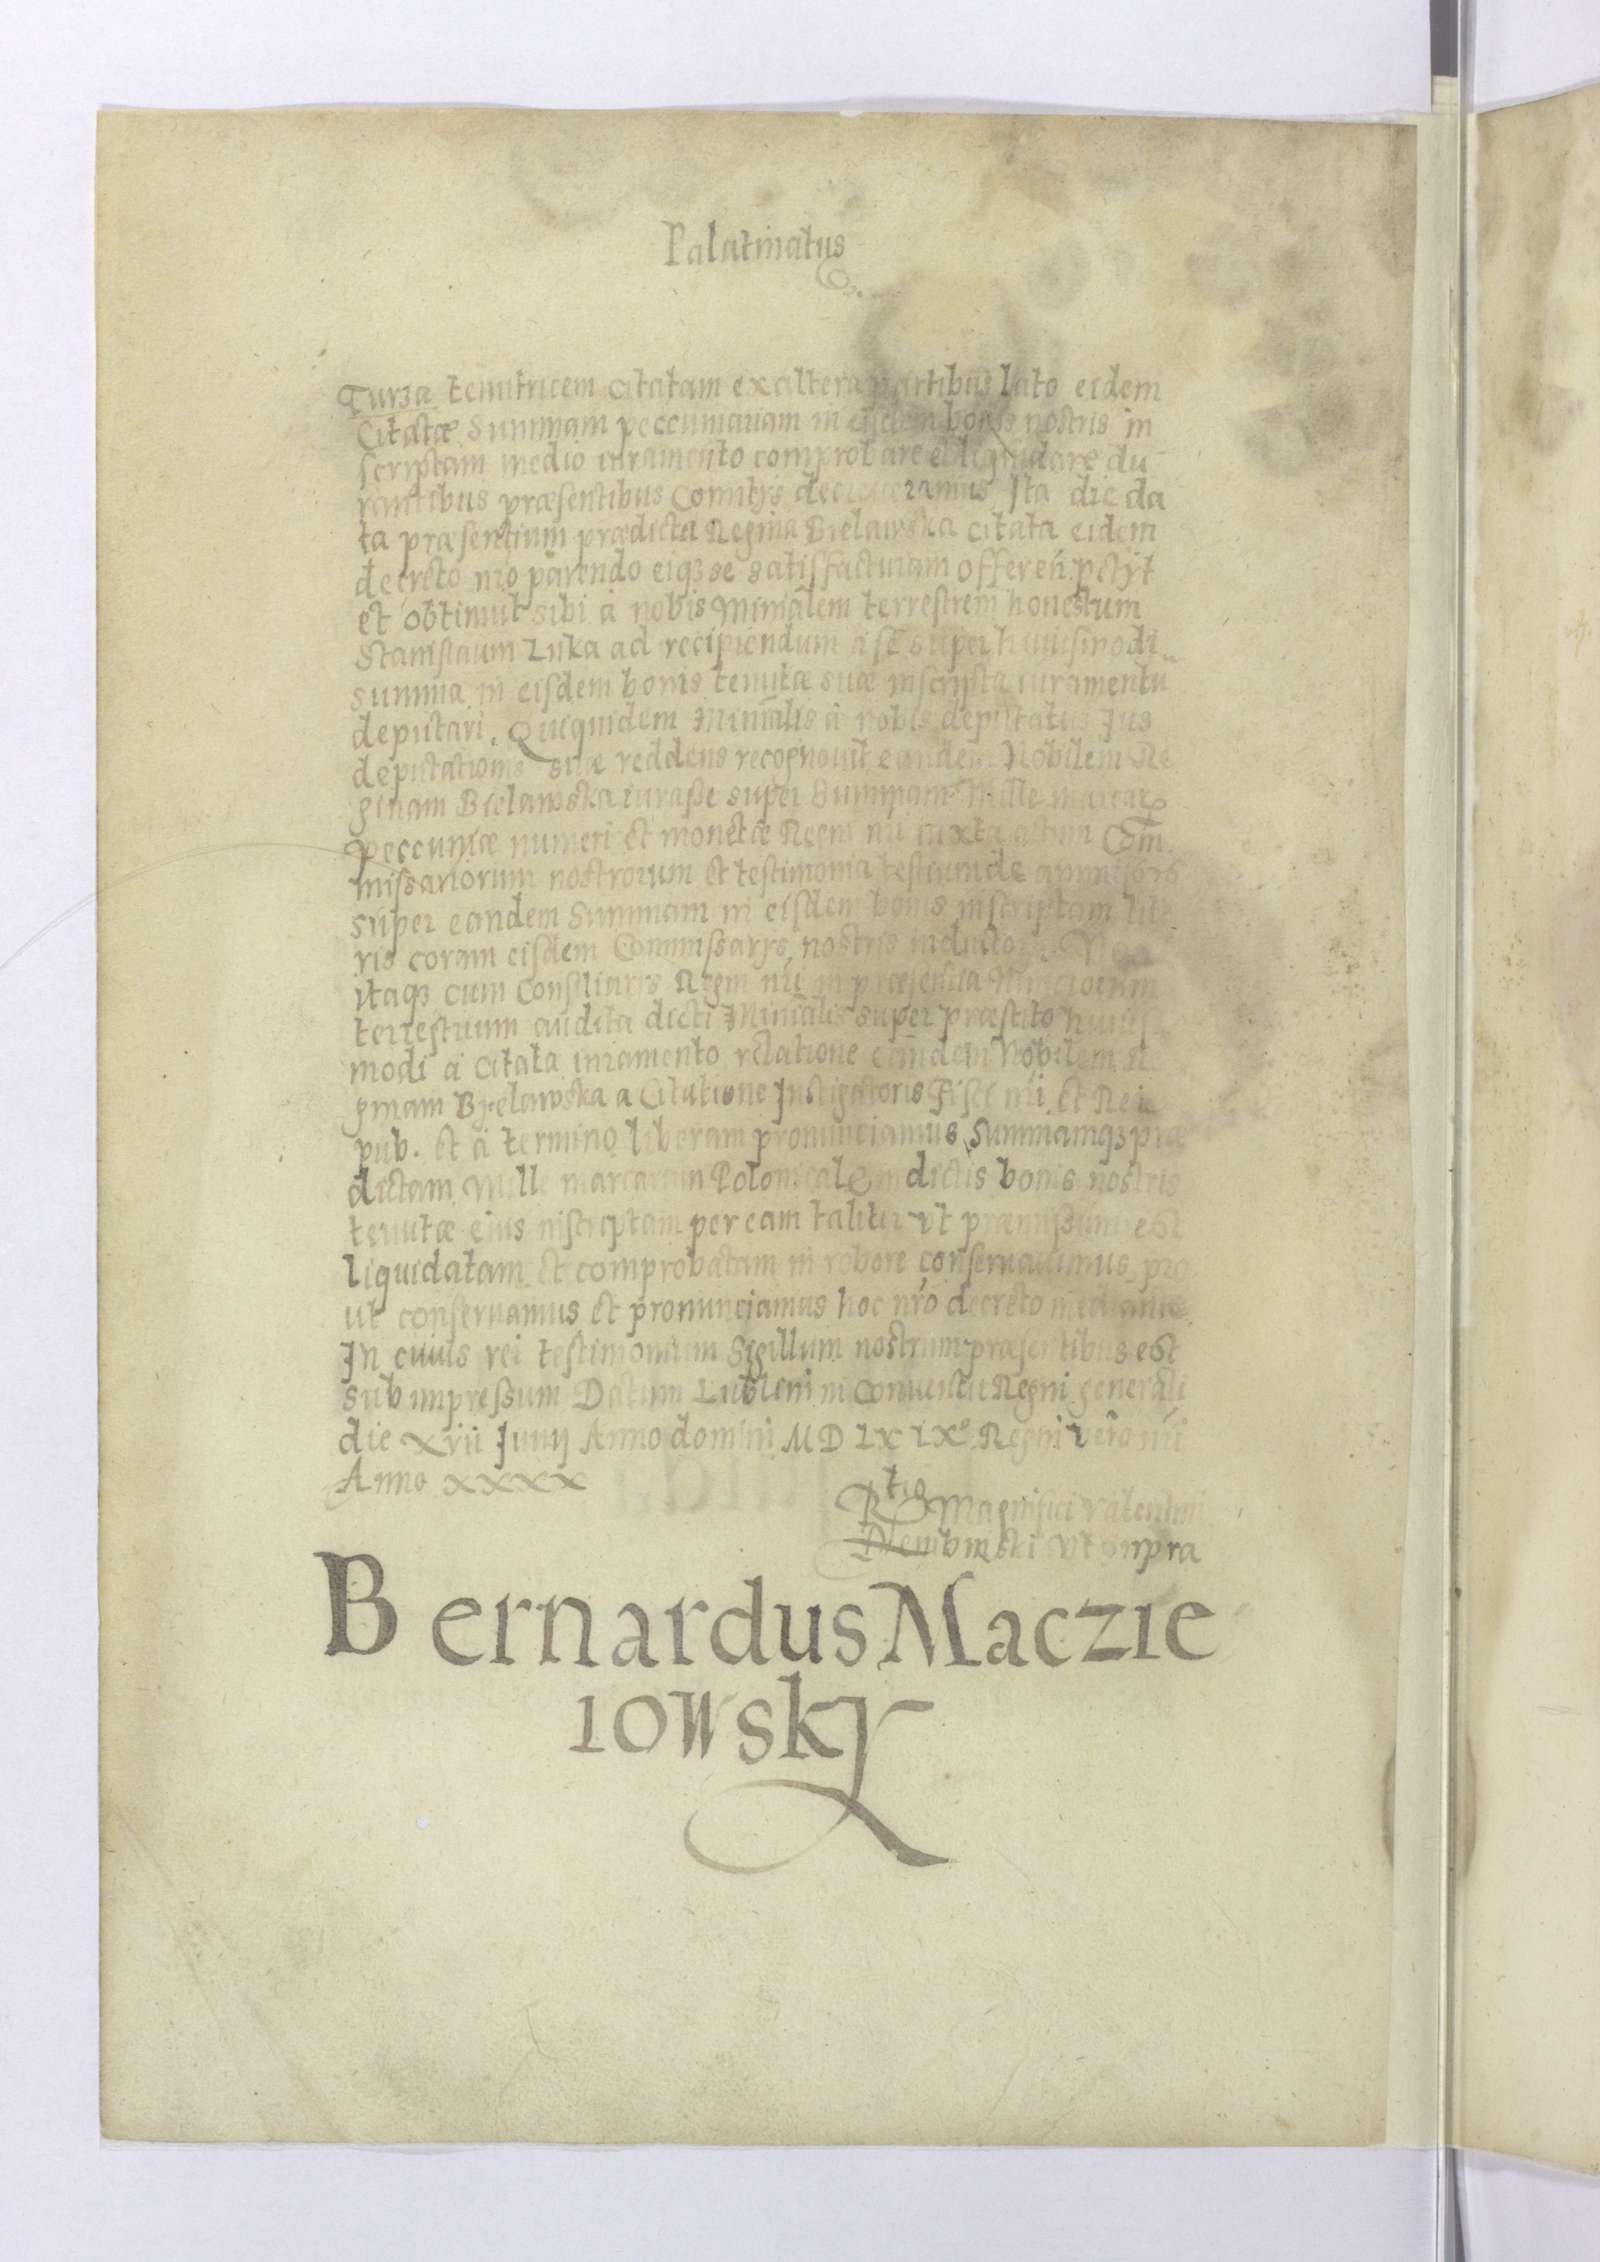 Palatinatus
Turza tenutricem citatam ex altera partibus lato eidem
Citatæ Summam peccuniariam in eisdem bonis nostris in
scriptam medio iuramento comprobare et liquidare du
rantibus præsentibus Comitijs decreueramus Ita die da
ta præsentium prædicta Regina Bielawska citata eidem
decreto nrō parendo eiqз se satisfacturam offereñ petijt
et obtinuit sibi à nobis Miniālem terrestrem honestum
Stanislaum Liska ad recipiendum à se super huiusmodi
summa in eisdem bonis tenutæ suæ inscripta iuramentū
deputari. Quiquidem Miniālis à nobis deputatus Jus
deputationis suæ reddens recognouit eandem Nobilem Re
ginam Bielawska iurasse super Summam Mille marcarꝫ
peccuniæ numeri et monetæ Regni nrī iuxta actum Com
missariorum nostrorum et testimonia testium de
super eandem Summam in eisdem bonis inscriptam lite
ris coram eisdem Commissarijs nostris inducto
itaqз cum Consiliarijs Regni nrī in præsentia Nunciorum
terrestrium audita dicti Miniālis super præstito huius
modi à citata iuramento relatione eandem Nobilem Re
ginam Bielawska a Citatione Instigatoris Fisci nrī et Rei
pub. et à termino liberam pronunciamus, Summamqз præ
dictam Mille marcarum Polonicaleꝫ in dictis bonis nostris
tenutæ eius inscriptam per eam taliter vt præmissum est
liquidatam et comprobatam in robore conseruauimus pro
ut conseruamus et pronunciamus hoc nrō decreto mediante
In cuius rei testimonium Sigillum nostrum præsentibus est
sub impressum Datum Lublini in Conuentu Regni generali
die xvii Junij Anno domini MDLXIXº Regni verò nrī
Anno xxxx
Rtio Magnifici Valentini
Dembinski vt supra
Bernardus Maczie
iowsky